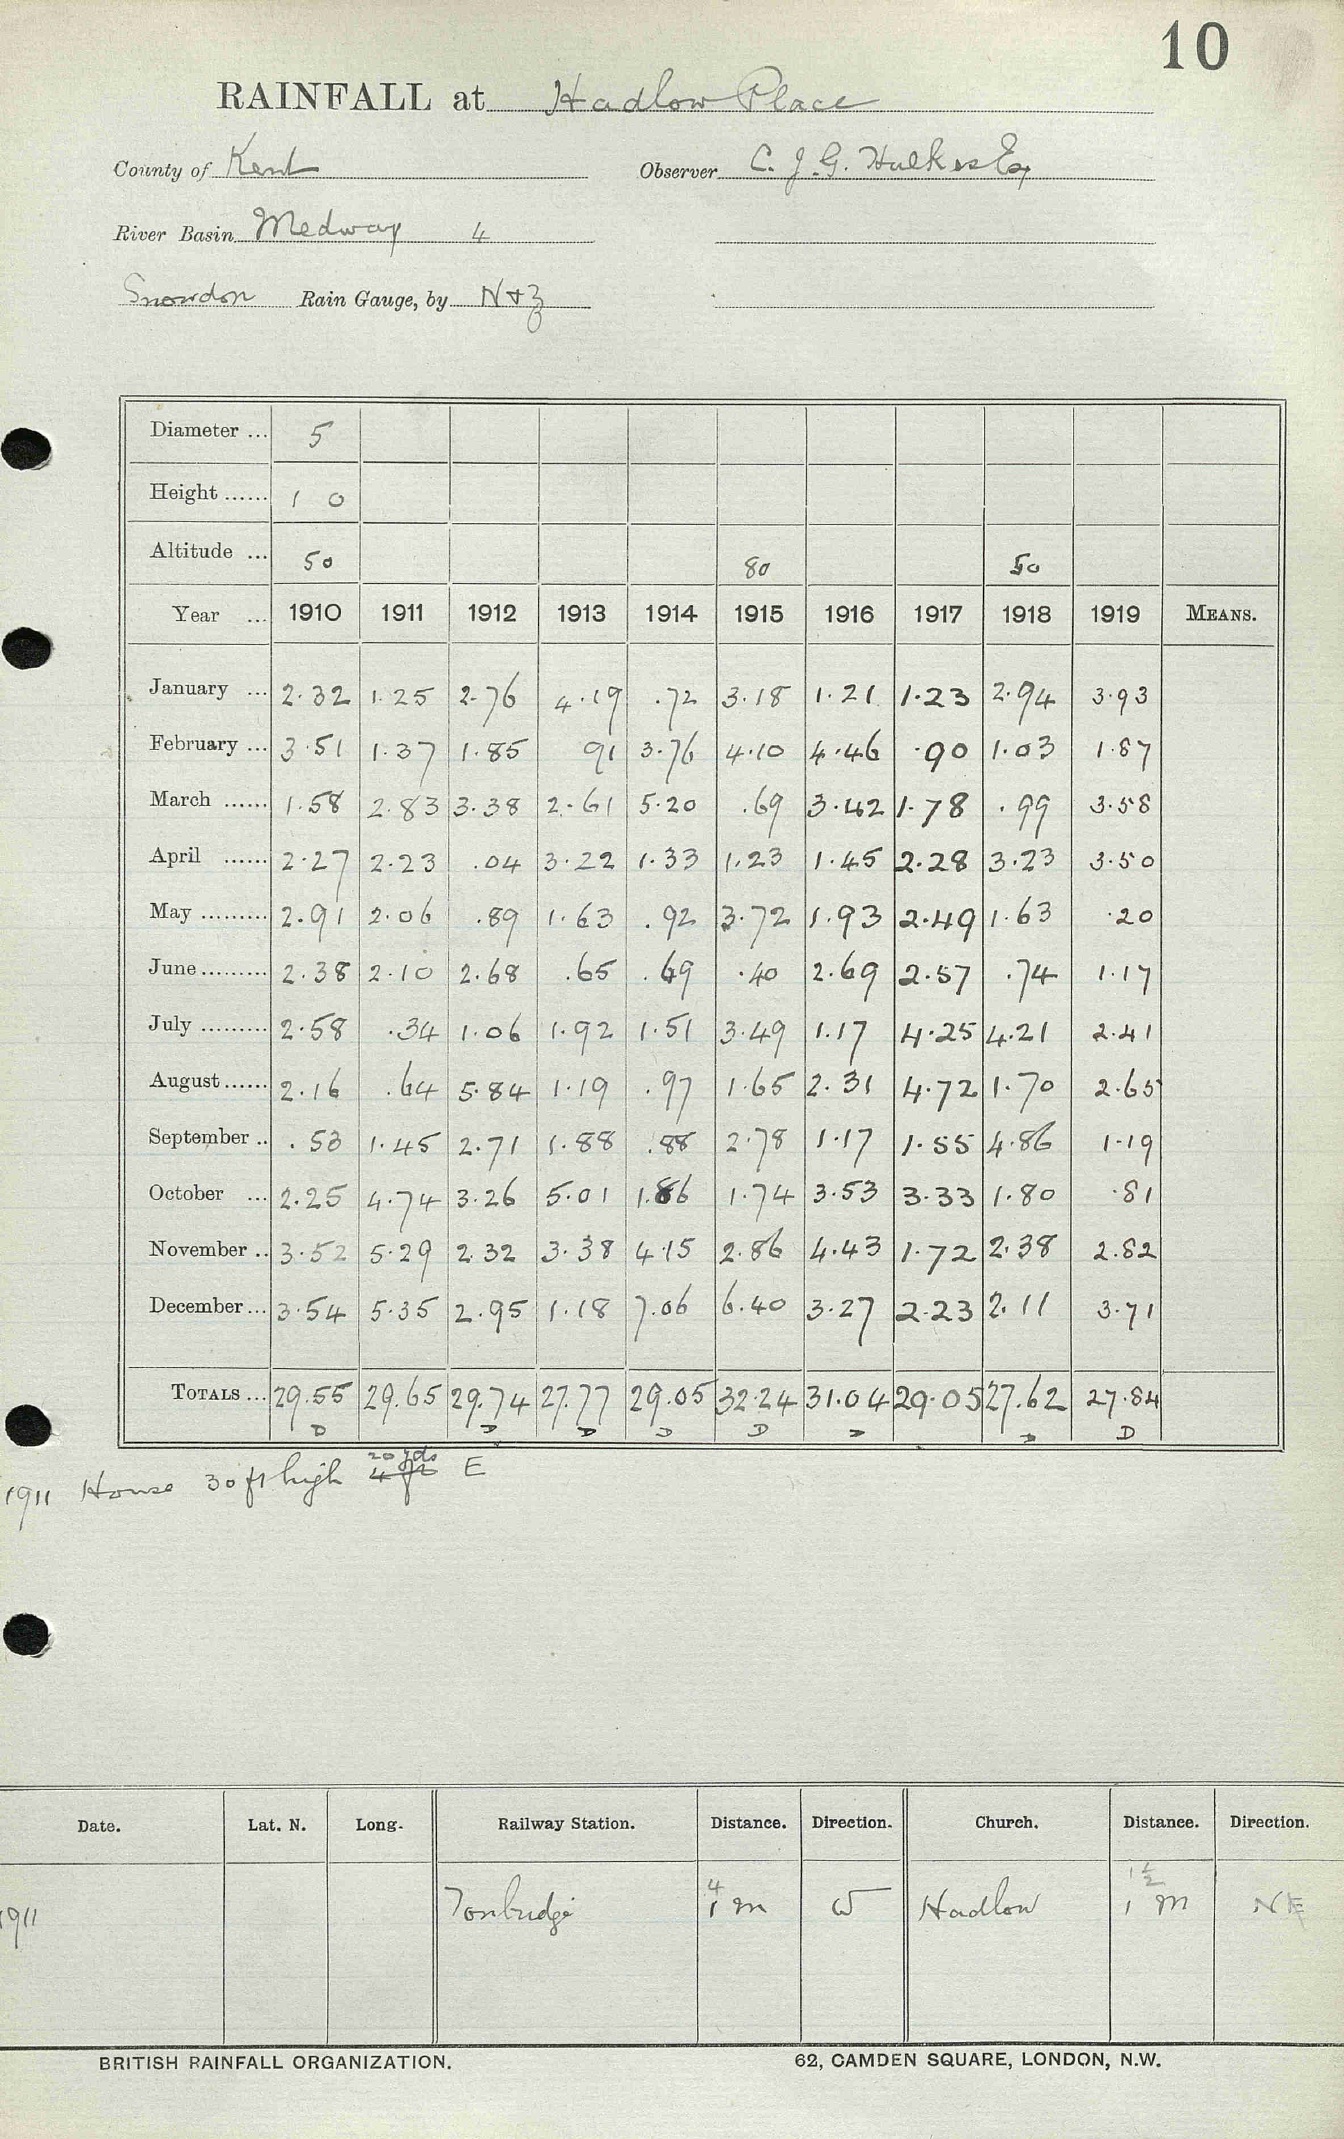 10
RAINFALL at Hadlow Place
County of Kent Observer C. J. G. Hulkes Esq
River Basin Medway 4
Snowdon Rain Gauge, by N & Z
Diameter ... 5
Height ...... 1 0
Altitude ... 50 80 50
Year ... 1910 1911 1912 1913 1914 1915 1916 1917 1918 1919 MEANS.
January ... 2.32 1.25 2.76 4.19 .72 3.18 1.21 1.23 2.94 3.93
February ... 3.51 1.37 1.85 91 3.76 4.10 4.46 .90 1.03 1.87
March ...... 1.58 2.83 3.38 2.61 5.20 .69 3.42 1.78 .99 3.58
April ...... 2.27 2.23 .04 3.22 1.33 1.23 1.45 2.28 3.23 3.50
May ......... 2.91 2.06 .89 1.63 .92 3.72 1.93 2.49 1.63 .20
June ......... 2.38 2.10 2.68 .65 .69 .40 2.69 2.57 .74 1.17
July ......... 2.58 .34 1.06 1.92 1.51 3.49 1.17 4.25 4.21 2.41
August ...... 2.16 .64 5.84 1.19 .97 1.65 2.31 4.72 1.70 2.65
September .. .53 1.45 2.71 1.88 .88 2.78 1.17 1.55 4.86 1.19
October ... 2.25 4.74 3.26 5.01 1.86 1.74 3.53 3.33 1.80 .81
November .. 3.52 5.29 2.32 3.38 4.15 2.86 4.43 1.72 2.38 2.82
December ... 3.54 5.35 2.95 1.18 7.06 6.40 3.27 2.23 2.11 3.71
TOTALS ... 29.55 29.65 29.74 27.77 29.05 32.24 31.04 29.05 27.62 27.84
D D D D D D D D
20 yds
1911 House 30 ft high 4 ft E
Date. Lat. N. Long. Railway Station. Distance. Direction. Church. Distance. Direction.
4 1½
1911 Tonbridge 1 m W Hadlow 1 m NE
BRITISH RAINFALL ORGANIZATION. 62, CAMDEN SQUARE, LONDON, N.W.